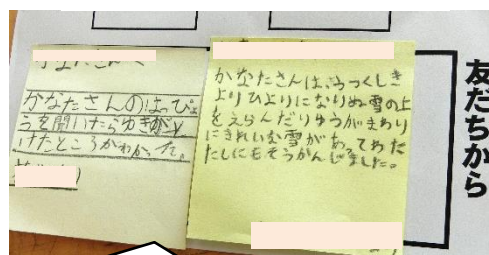 友だちから
かなたさんのはっぴょ
うを聞いたらゆきがと
けたところがわかった。
かなたさんは、うつくしき
よりひよりになりぬ雪の上
をえらんだりゆうがまわり
にきれいな雪があってわた
たしにもそうかんじました。